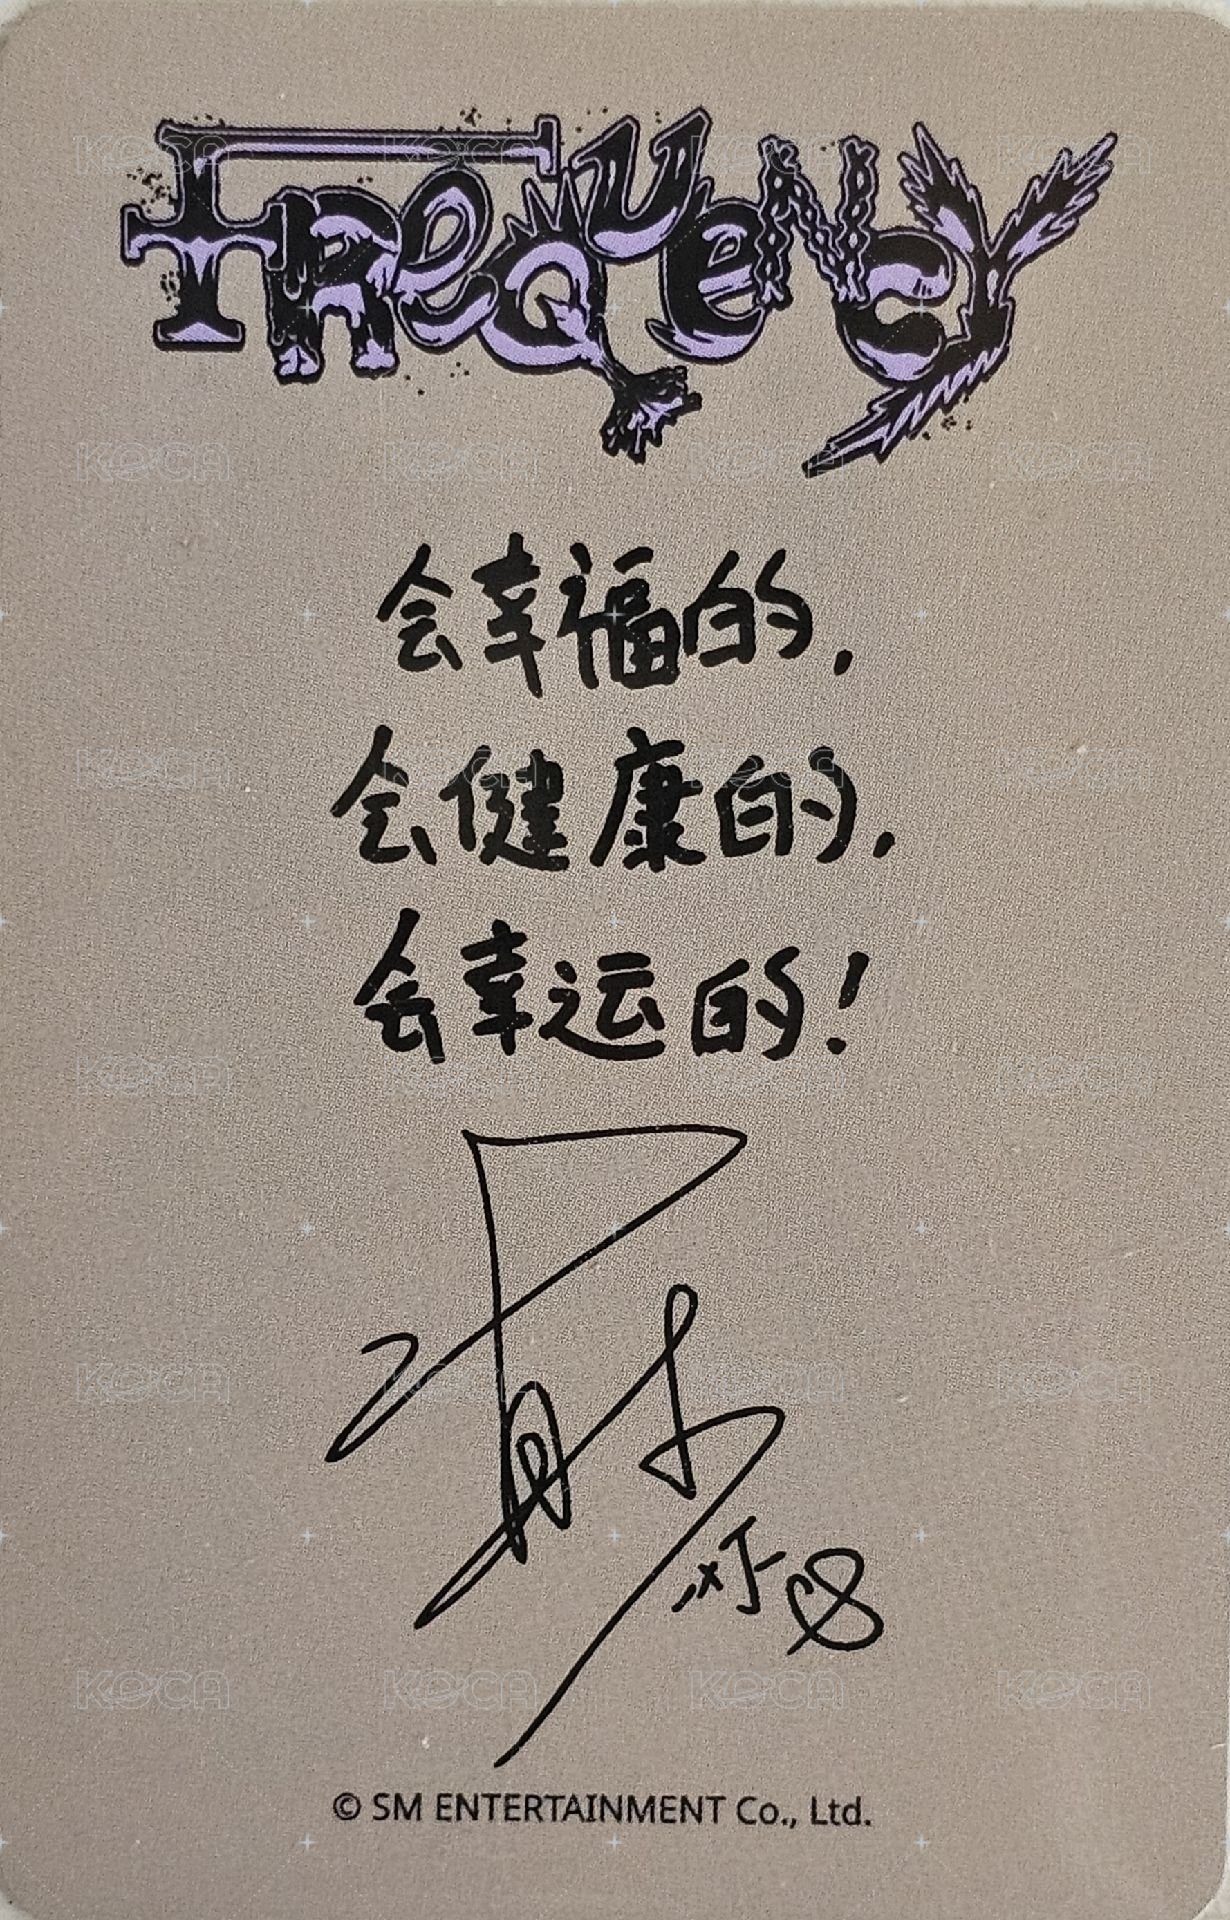 FREQUENCY
会幸福的,
会健康的,
会幸运的!
© SM ENTERTAINMENT Co., Ltd.
KOCA